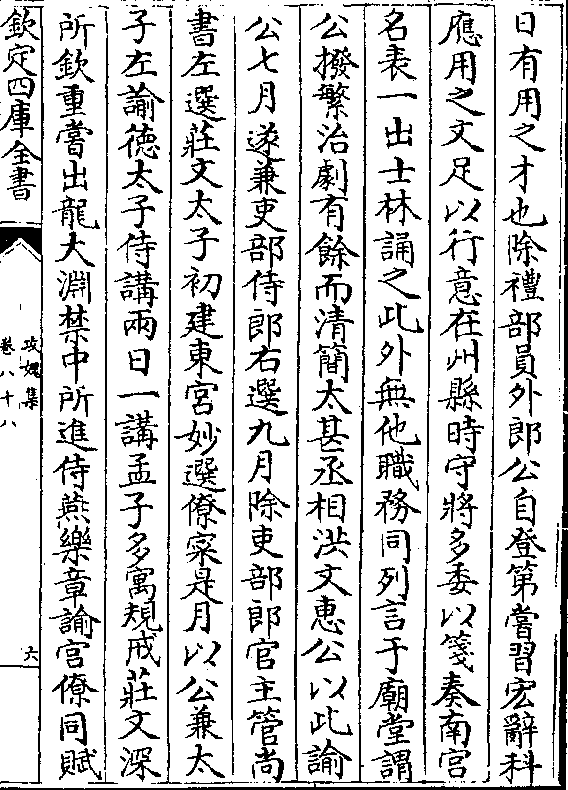 日有用之才也除禮部員外郎公自登第嘗習宏辭科
應用之文足以行意在州縣時守將多委以箋奏南宮
名表一出士林誦之此外無他職務同列言于廟堂謂
公撥繁治劇有餘而清簡太甚丞相洪文惠公以此諭
公七月遂兼吏部侍郎右選九月除吏部郎官主管尚
書左選莊文太子初建東宮妙選僚寀是月以公兼太
子左諭徳太子侍講兩日一講孟子多寓規戒莊文深
所欽重嘗出龍大淵禁中所進侍燕樂章諭宮僚同賦
欽定四庫全書
攻媿集
卷八十八
六